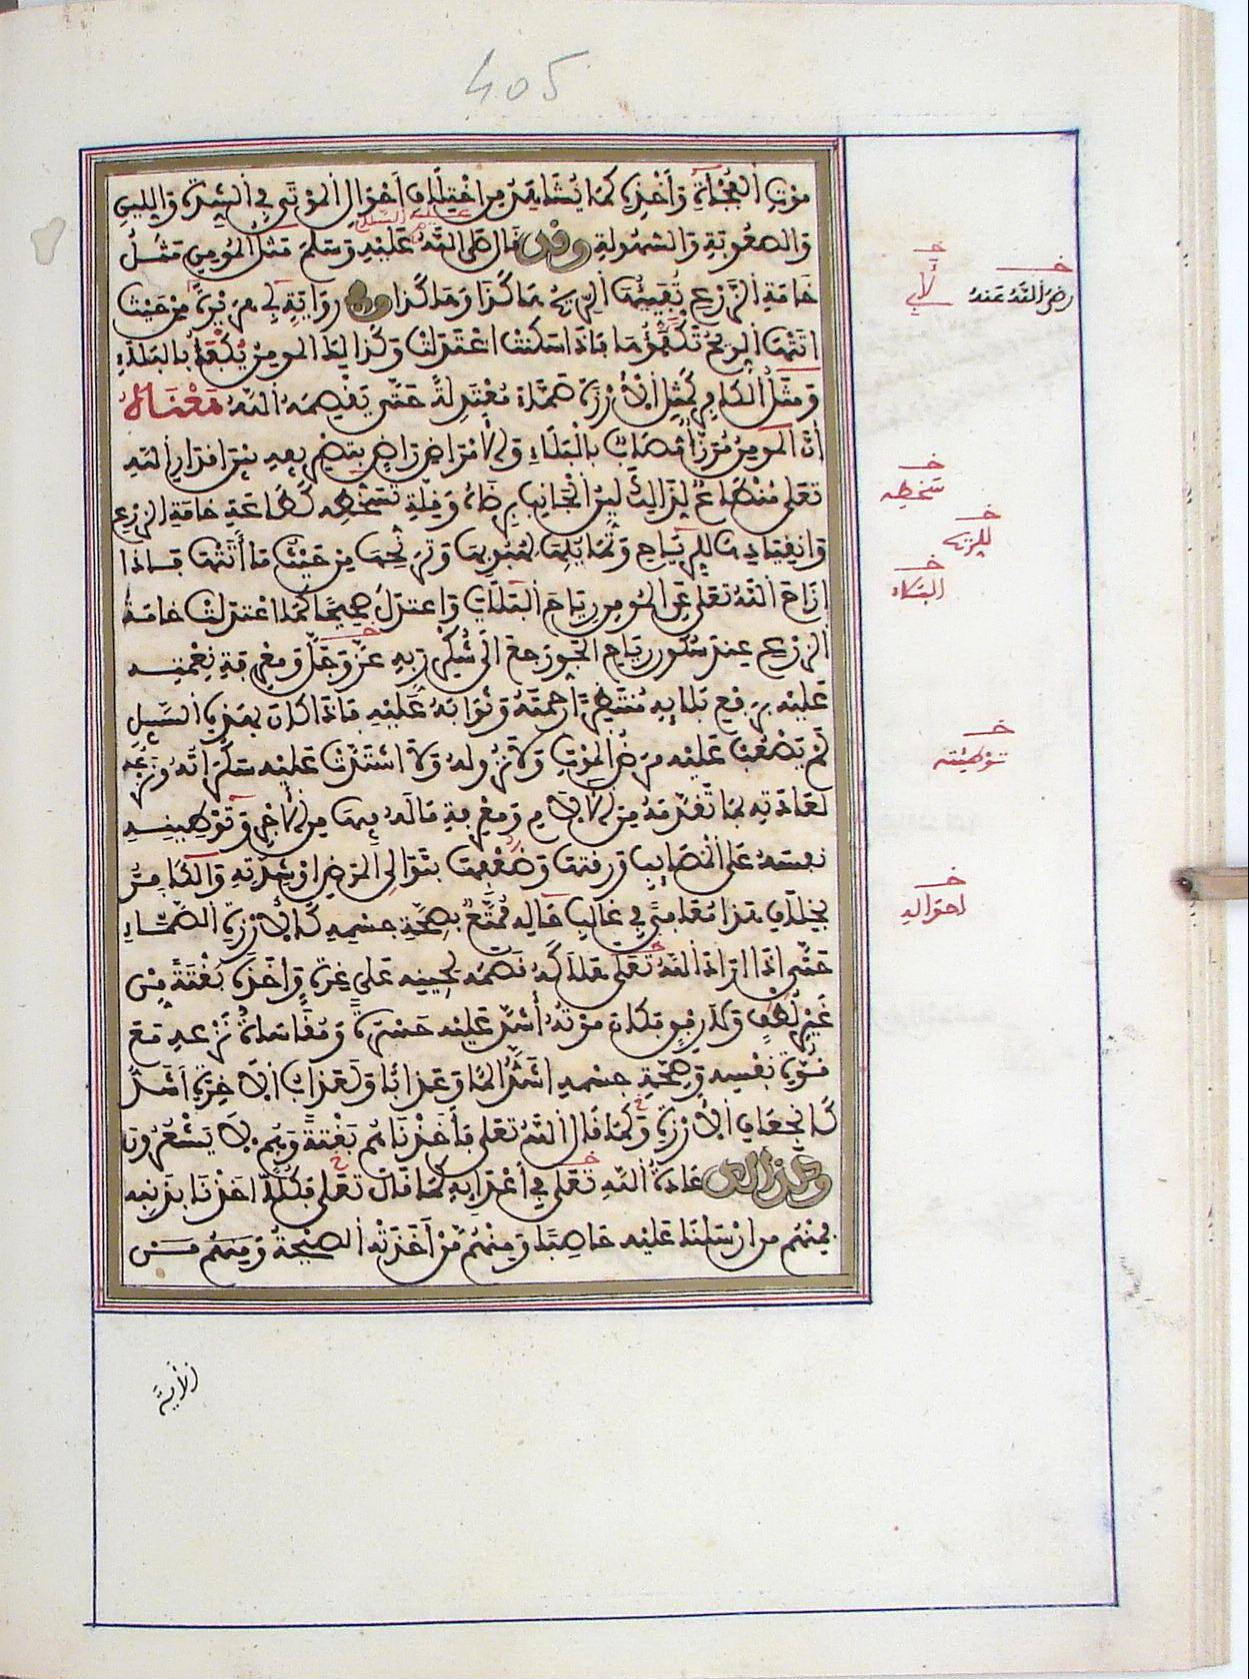 405
موت الفجأة وأخذه كما يشاهد من اختلاف أحوال الموتى في الشدة واللين
والصعوبة والسهولة وقد قال صلى الله عليه وسلم مثل المومن مثل
عليه السلام
خامة الزرع تفيئها الريح هاكذا وهاكذا وفي رواية أبي هريرة من حيث
لأبي
رضي الله عنه
اتتها الريح تكفؤها فإذا سكنت اعتدلت وكذالك المومن يكفأ بالبلاء
ومثل الكافر كمثل الأرزة صماء معتدلة حتى يقصمه الله معناه
أن المومن مرزأ مصاب بالبلاء والأمراض راض بتصريفه بين أقدار الله
تعلى منطاع لذالك لين الجانب برضاه وقلة تسخطه كطاعة خامة الزرع
سخطه
وانقيادها للرياح وتمايلها لهبوبها وترنحها من حيث ما أتتها فإذا
للريح
أزاح الله تعلى عن المومن رياح البلايا واعتدل صحيحا كما اعتدلت خامة
البلاء
الزرع عند سكون رياح الجو رجع إلى شكر ربه عز وجل ومعرفة نعمته
عليه برفع بلايه منتظرا رحمته وثوابه عليه فإذا كان بهذه السبيل
لم يصعب عليه مرض الموت ولا نزوله ولا اشتدت عليه سكراته ونزعه
توطئته
لعادته بما تقدمه من الآلام ومعرفة ماله فيها من الأجر وتوطينه
نفسه على المصايب ورقتها وضعفها بتوالي المرض أو شدته والكافر
بخلاف هذا معافى في غالب حاله ممتع بصحة جسمه كالأرزة الصماء
احواله
حتى إذا أراد الله تعلى هلاكه قصمه لحينه على غرة وأخذه بغتة من
غير لطف ولا رفق فكان موته أشد عليه حسرة ومقاساة نزعه مع
قوة نفسه وصحة جسمه أشد ألما وعذابا ولعذاب الآخرة أشد
كانجعاف الأرزة وكما قال الله تعلى فأخذناهم بغتة وهم لا يشعرون
وكذالك عادة الله تعلى في أعدايه كما قال تعلى فكلا أخذنا بذنبه
فمنهم من ارسلنا عليه حاصبا ومنهم من أخذته الصيحة ومنهم من
الأية